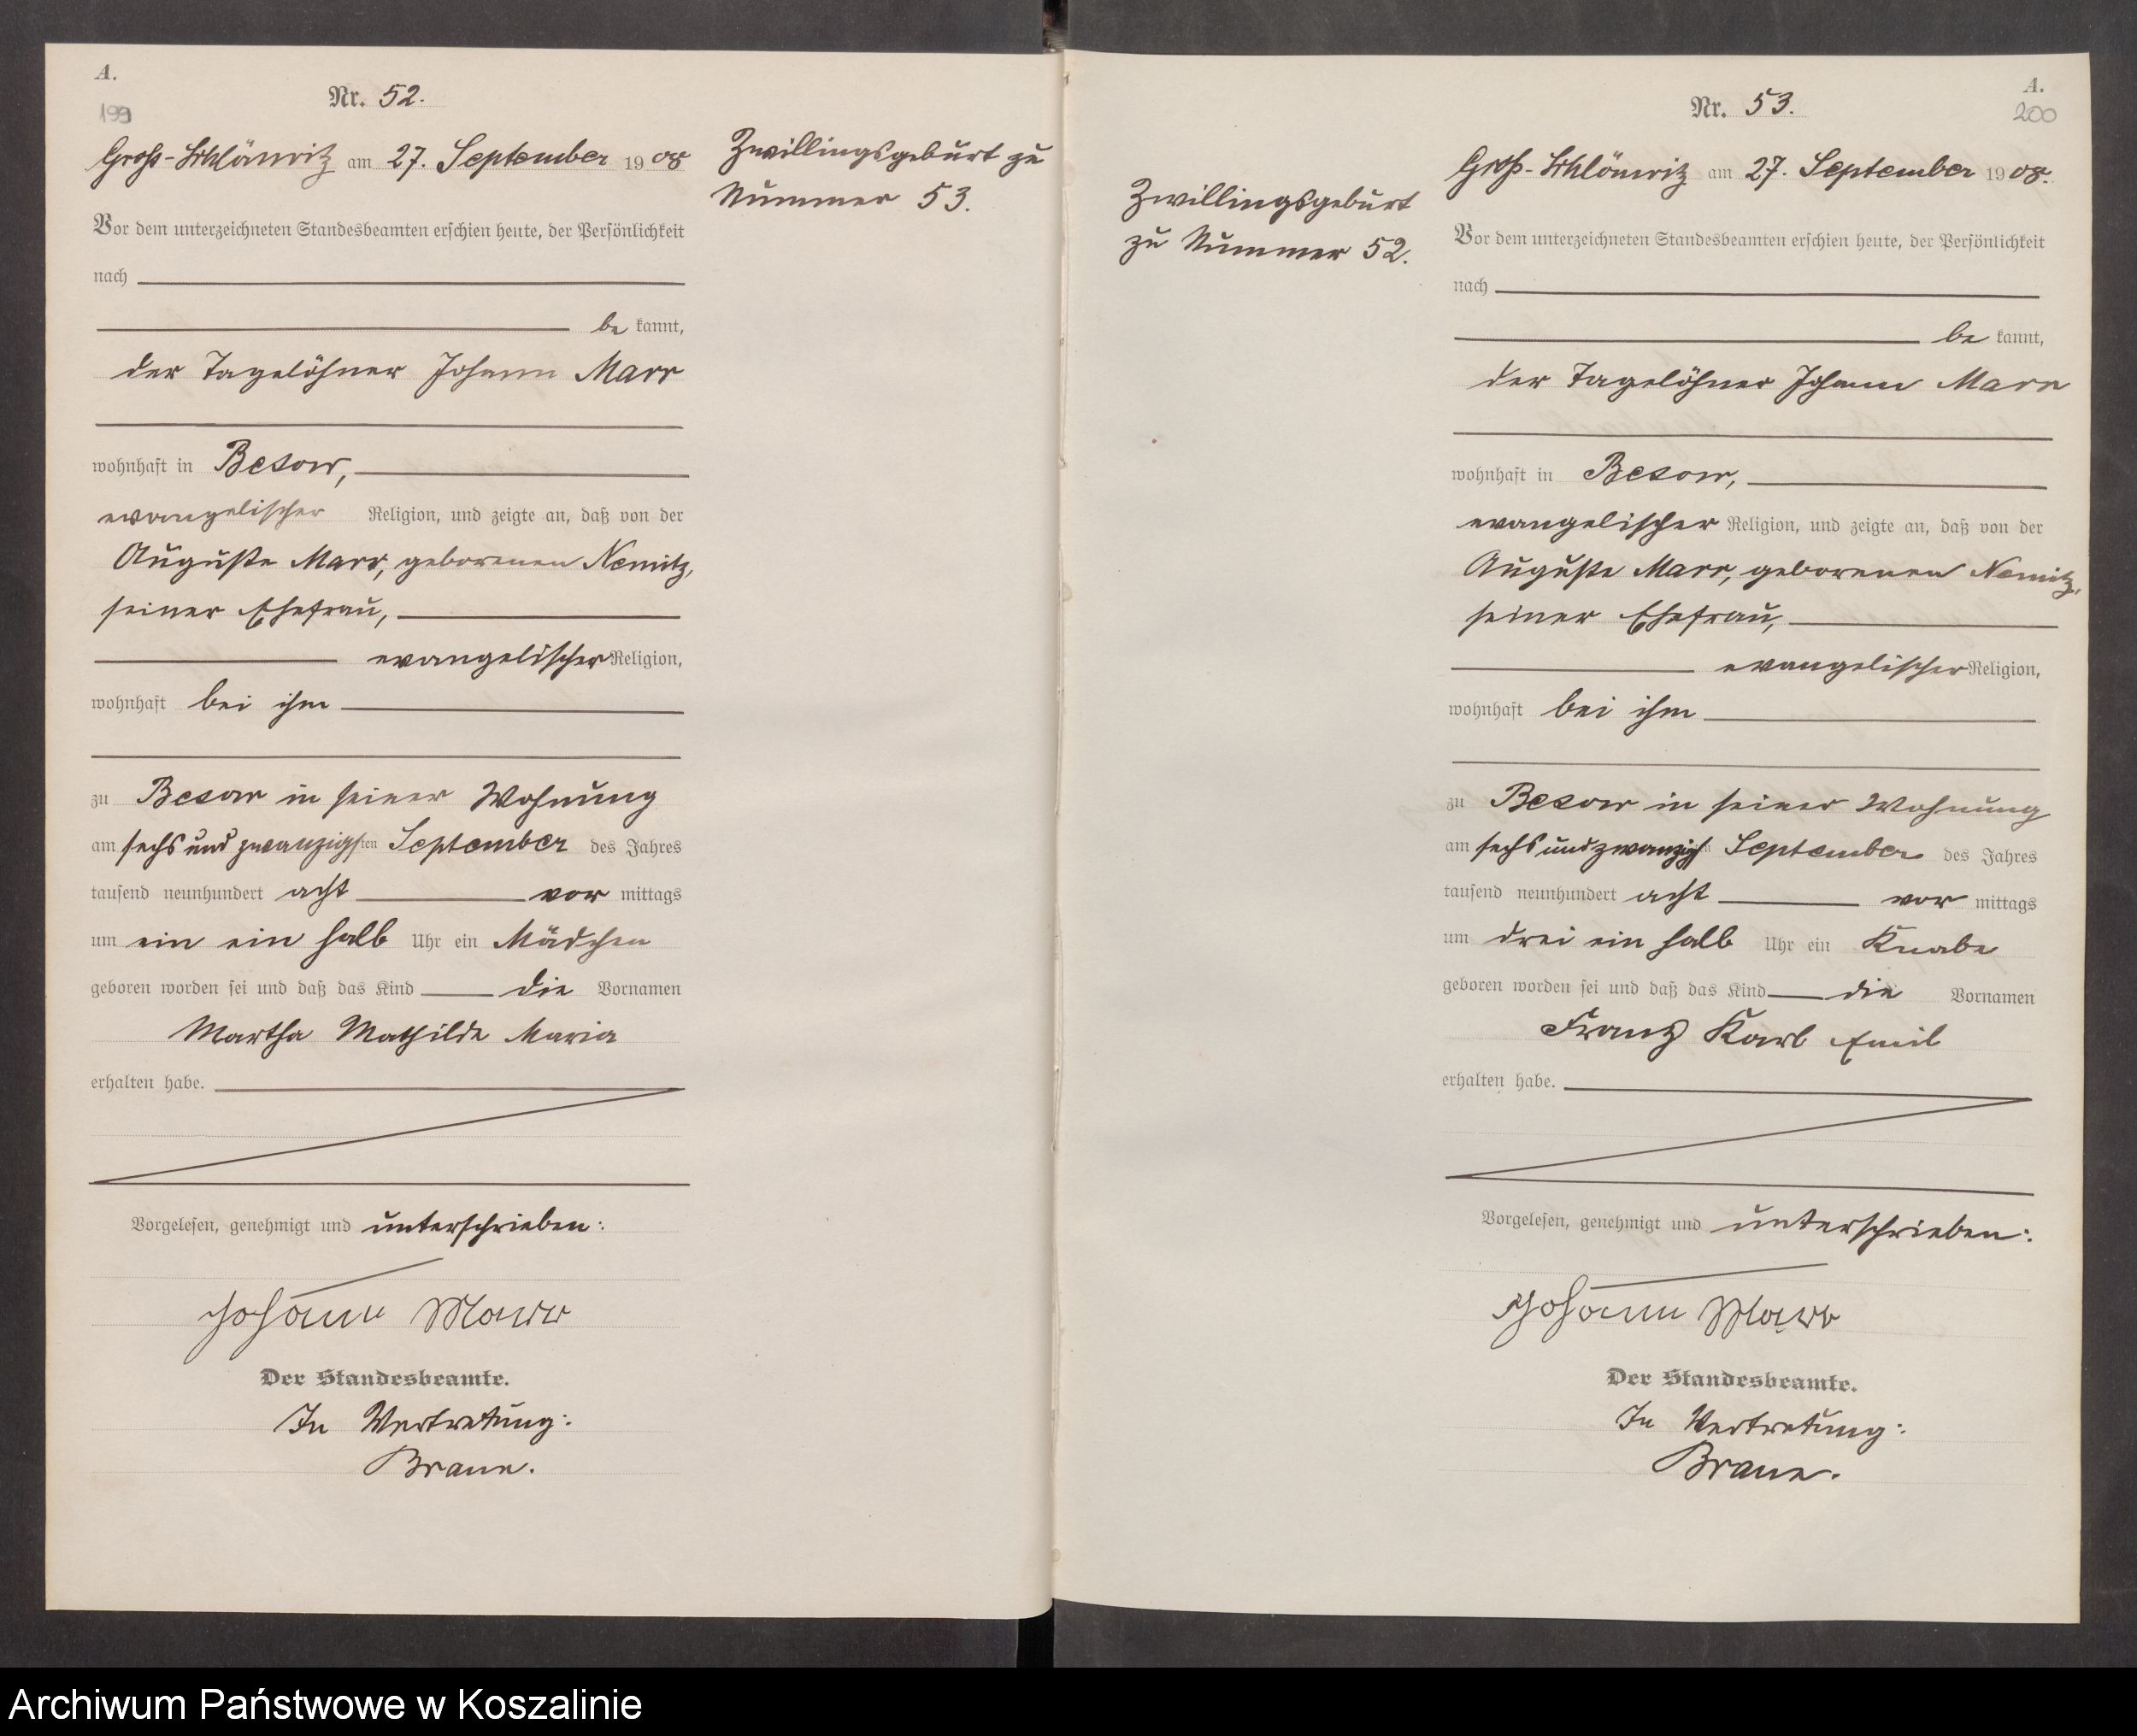 A.
199
Nr. 52.
Groß-Schlönwitz am 27. September 1908
Vor dem unterzeichneten Standesbeamten erschien heute, der Persönlichkeit
nach
be kannt,
der Tagelöhner Johann Marr
wohnhaft in Besow,
evangelischer Religion, und zeigte an, daß von der
Auguste Marr, geborenen Nemitz,
seiner Ehefrau,
evangelischer Religion,
wohnhaft bei ihm
zu Besow in seiner Wohnung
am sechs und zwanzigsten September des Jahres
tausend neunhundert acht vor mittags
um ein ein halb Uhr ein Mädchen
geboren worden sei und daß das Kind die Vornamen
Martha Mathilde Maria
erhalten habe.
Vorgelesen, genehmigt und unterschrieben:
Johann Marr
Der Standesbeamte.
In Vertretung:
Zwillingsgeburt zu
Nummer 53.
Zwillingsgeburt
zu Nummer 52.
A.
200
Nr. 53.
Groß-Schlönwitz am 27. September 1908.
Vor dem unterzeichneten Standesbeamten erschien heute, der Persönlichkeit
nach
be kannt,
der Tagelöhner Johann Marr
wohnhaft in Besow,
evangelischer Religion, und zeigte an, daß von der
Auguste Marr, geborenen Nemitz,
seiner Ehefrau,
evangelischer Religion,
wohnhaft bei ihm
zu Besow in seiner Wohnung
am sechs und zwanzigsten September des Jahres
tausend neunhundert acht vor mittags
um drei ein halb Uhr ein Knabe
geboren worden sei und daß das Kind die Vornamen
Franz Karl Emil
erhalten habe.
Vorgelesen, genehmigt und unterschrieben:
Johann Marr
Der Standesbeamte.
In Vertretung:
Archiwum Państwowe w Koszalinie